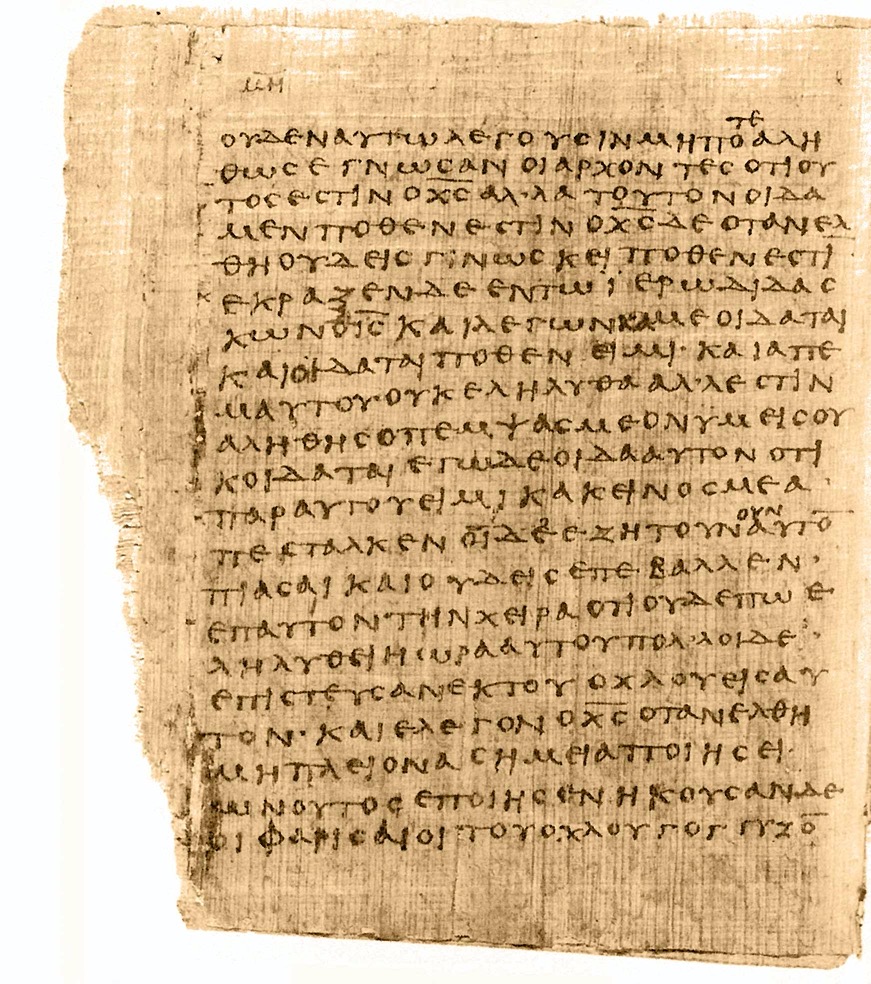 ΜΗ
ΟΥΔΕΝΑΥΤΩΛΕΓΟΥϹΙΝΜΗΠΟ`ΤΕ´ΑΛΗ
ΘΩϹΕΓΝΩϹΑΝΟΙΑΡΧΟΝΤΕϹΟΤΙΟΥ
ΤΟϹΕϹΤΙΝΟΧ̅Ϲ̅ΑΛΛΑΤΟΥΤΟΝΟΙΔΑ
ΜΕΝΠΟΘΕΝΕϹΤΙΝΟΧ̅Ϲ̅ΔΕΟΤΑΝΕΛ
ΘΗΟΥΔΕΙϹΓΙΝΩϹΚΕΙΠΟΘΕΝΕϹΤΙ̅
ΕΚΡΑΖΕΝΔΕΕΝΤΩΙΕΡΩΔΙΔΑϹ
ΚΩΝΟΙ̅Ϲ̅ΚΑΙΛΕΓΩΝΚΑΜΕΟΙΔΑΤΑΙ
ΚΑΙΟΙΔΑΤΑΙΠΟΘΕΝΕΙΜΙ·ΚΑΙΑΠΕ
ΜΑΥΤΟΥΟΥΚΕΛΗΛΥΘΑΑΛΛΕϹΤΙΝ
ΑΛΗΘΗϹΟΠΕΜΨΑϹΜΕΟΝΥΜΕΙϹΟΥ
ΚΟΙΔΑΤΑΙΕΓΩΔΕΟΙΔΑΑΥΤΟΝΟΤΙ
ΠΑΡΑΥΤΟΥΕΙΜΙΚΑΚΕΙΝΟϹΜΕΑ
ΠΕϹΤΑΛΚΕΝΟΙΔΕΕΖΗΤΟΥΝ`ΟΥΝ´ΑΥΤΟ̅
ΠΙΑϹΑΙΚΑΙΟΥΔΕΙϹΕΠΕΒΑΛΛΕΝ·
ΕΠΑΥΤΟΝΤΗΝΧΕΙΡΑΟΤΙΟΥΔΕΠΩΕ
ΛΗΛΥΘΕΙΗΩΡΑΑΥΤΟΥΠΟΛΛΟΙΔΕ
ΕΠΙϹΤΕΥϹΑΝΕΚΤΟΥΟΧΛΟΥΕΙϹΑΥ
ΤΟΝ·ΚΑΙΕΛΕΓΟΝΟΧ̅Ϲ̅ΟΤΑΝΕΛΘΗ
ΜΗΠΛΕΙΟΝΑϹΗΜΕΙΑΠΟΙΗϹΕΙ·
ΩΝΟΥΤΟϹΕΠΟΙΗϹΕΝΗΚΟΥϹΑΝΔΕ
ΟΙΦΑΡΙϹΑΙΟΙΤΟΥΟΧΛΟΥΓΟΓΓΥΖΟ̅